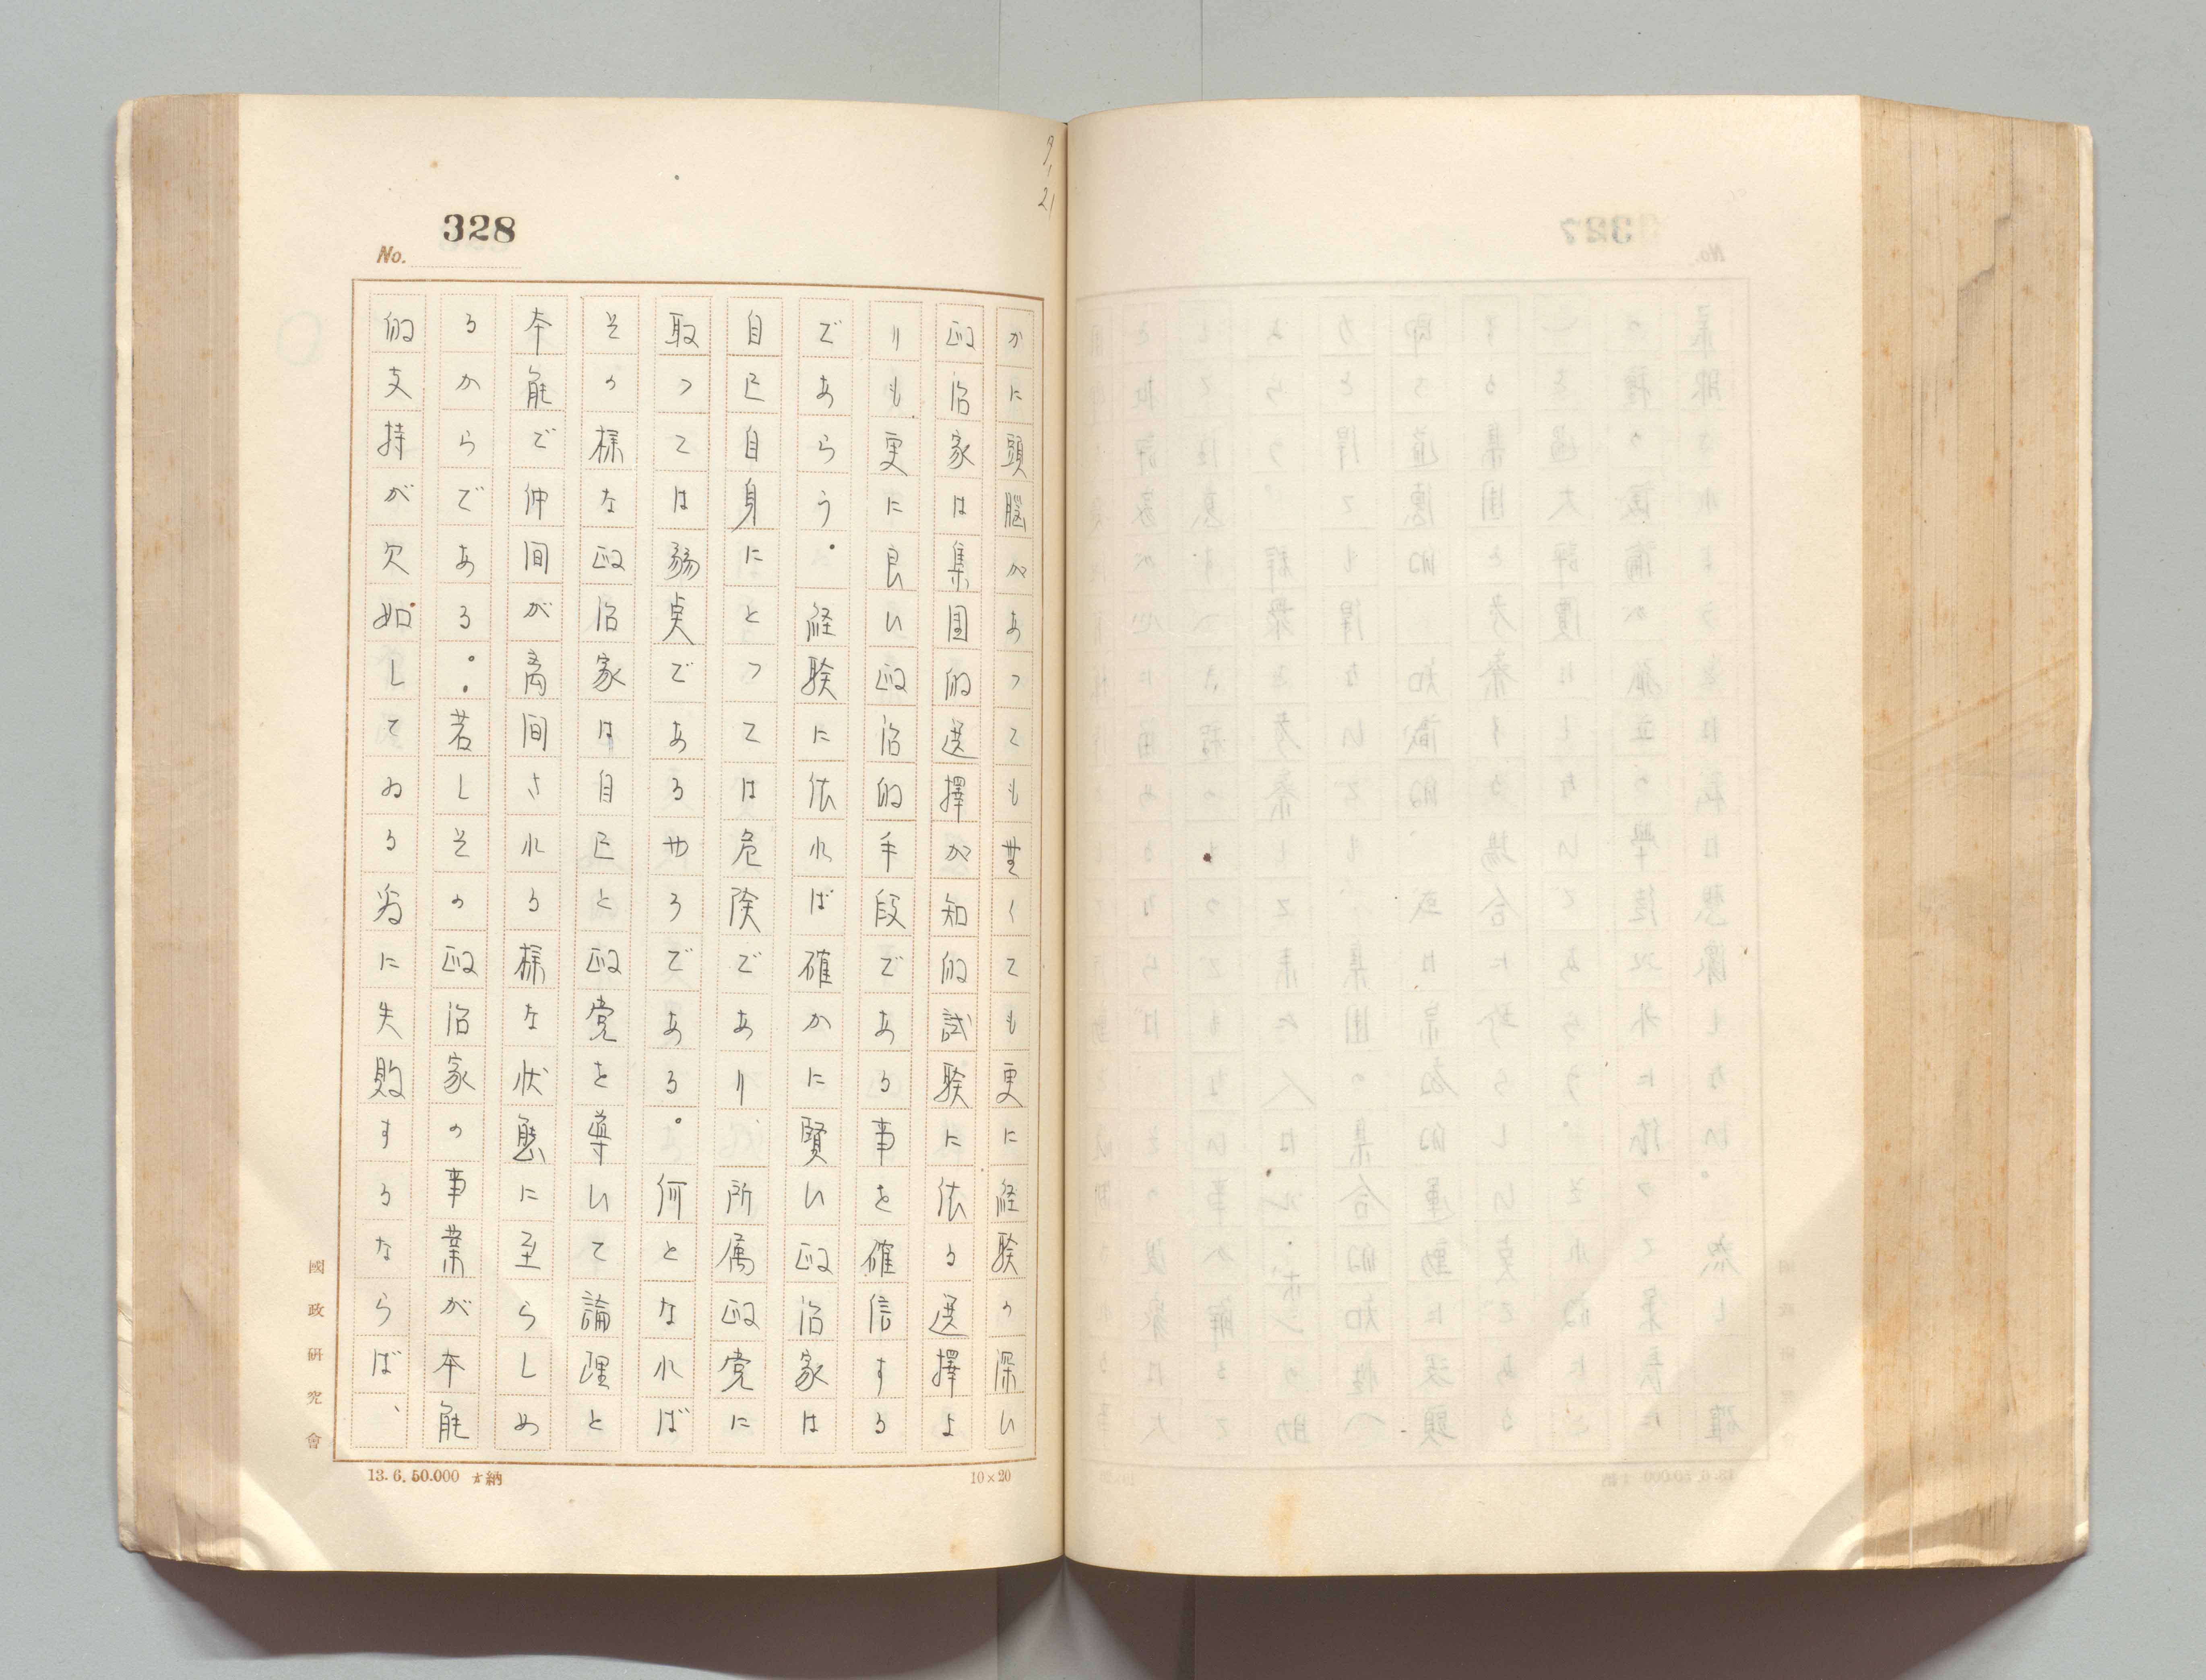 9,
21
328
No.
かに頭脳があつても無くても更に経験の深い
政治家は集団的選擇が知的試験に依る選擇よ
りも更に良い政治的手段である事を確信する
であらう。経験に依れば確かに賢い政治家は
自己自身にとつては危険であり、所属政党に
取つては弱奌であるやろである。何となれば
その様な政治家は自己と政党を導いて論理と
本能で仲間が离間される様な状態に至らしめ
るからである。若しその政治家の事業が本能
的支持が欠如してゐる為に失敗するならば、
國政研究會
13.6.50.000 納
10×20